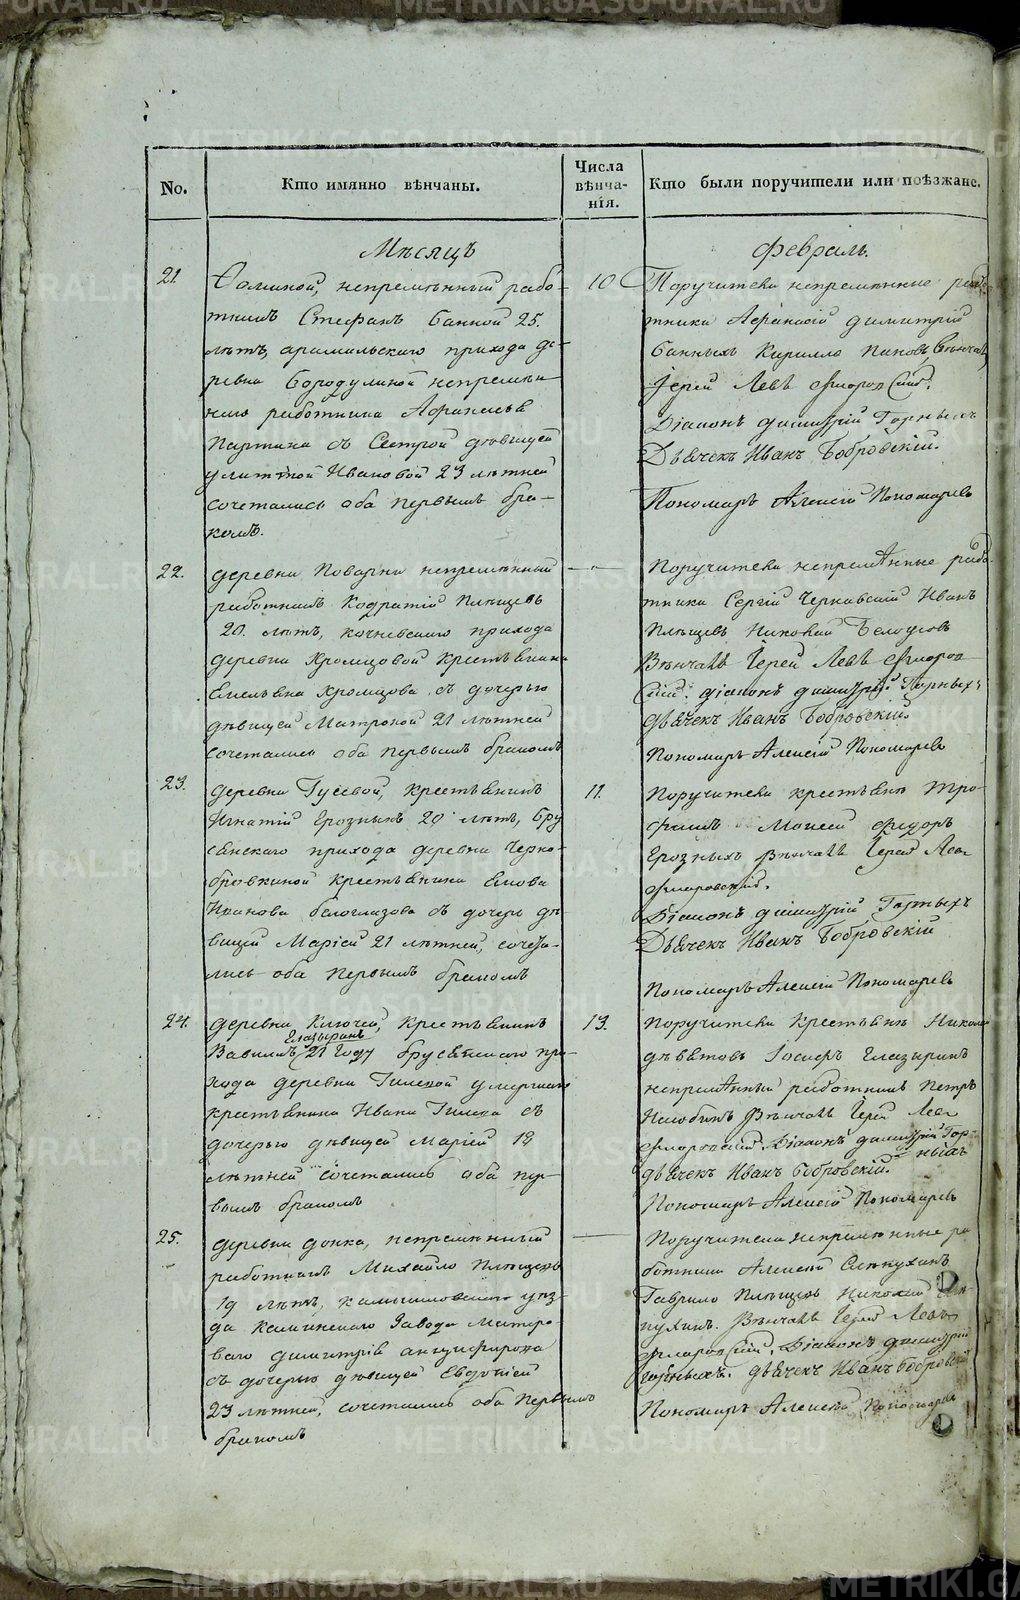 No.
Кто имянно вѣнчаны.
Числа
вѣнча-
нія.
Кто были поручители или поѣзжане.
Мѣсяцъ
Февраль.
21.
непремѣнный рабо-
тникъ Стефанъ Банной 25.
лѣтъ, арамильскаго прихода де-
ревни Бородулиной непремѣн-
наго работника Афанасья
съ сестрой дѣвицей
Улиттой Ивановой 23 лѣтней
сочетались оба первымъ бра-
комъ.
10
Поручители непремѣнные рабо-
тники Афанасій Димитрій
Банныхъ Кирилло Пановъ, Вѣнчалъ
Іерей Левъ Флоровскій.
Діаконъ Димитрій Горныхъ
Дьячекъ Иванъ Бобровскій.
Пономарь Алексій Пономаревъ
22.
деревни Поварни непремѣнный
работникъ Кодратій Плѣщевъ
20. лѣтъ, кочневскаго прихода
деревни Хромцовой крестьянина
Емельяна Хромцова съ дочерью
дѣвицей Матроной 21 лѣтней
сочетались оба первымъ бракомъ
Поручители непремѣнные рабо-
тники Сергій Чернавскій Иванъ
Плѣщевъ Николай Белоусовъ
Вѣнчалъ Іерей Левъ Флоров-
скій. діаконъ Димитрій Горныхъ
Дьячекъ Иванъ Бобровскій.
Пономарь Алексій Пономаревъ
23.
деревни Гусевой, крестьянинъ
Игнатій Ерозныхъ 20 лѣтъ, Бру
сянскаго прихода деревни Черно-
бровкиной крестьянина
Иванова Белоглазова съ дочерь дѣ-
вицей Маріей 21 лѣтней, сочета-
лись оба первымъ бракомъ
11.
Поручители крестьяне Тро-
фимъ Моисей Федоръ
Ерозныхъ Вѣнчалъ Іерей Левъ
Флоровскій.
Діаконъ Димитрій Горныхъ
Дьячекъ Иванъ Бобровскій
Пономарь Алексій Пономаревъ
24.
деревни Ключей, крестьянинъ
Глазыринъ
Вавилъ 21 году брусянскаго при-
хода деревни Гилевой умершаго
крестьянина Ивана Гилева съ
дочерью дѣвицей Маріей 18
лѣтней сочетались оба пер-
вымъ бракомъ
13.
Поручители крестьяне Никола
Девятовъ Іосифъ Глазыринъ
непремѣнный работникъ Петръ
Вѣнчалъ Іерей Левъ
Флоровскій. Діаконъ Димитрій Гор-
ныхъ
Дьячекъ Иванъ Бобровскій.
Пономарь Алексій Пономаревъ
25.
деревни непремѣнный
работникъ Михайло Плѣщевъ
19 лѣтъ, камышловскаго уѣз-
да Каминскаго Завода Мастеро-
ваго Димитрія
съ дочерью дѣвицей Евдокіей
23 лѣтней, сочетались оба первымъ
бракомъ
Поручители непремѣнные ра
ботники Алексѣй
Гаврило Плѣщевъ Николай
Вѣнчалъ Іерей Левъ
Флоровскій. Діаконъ Димитрій
Горныхъ. Дьячекъ Иванъ Бобровскій
Пономарь Алексѣй Пономаревъ
METRIKI.GASO-URAL.RU